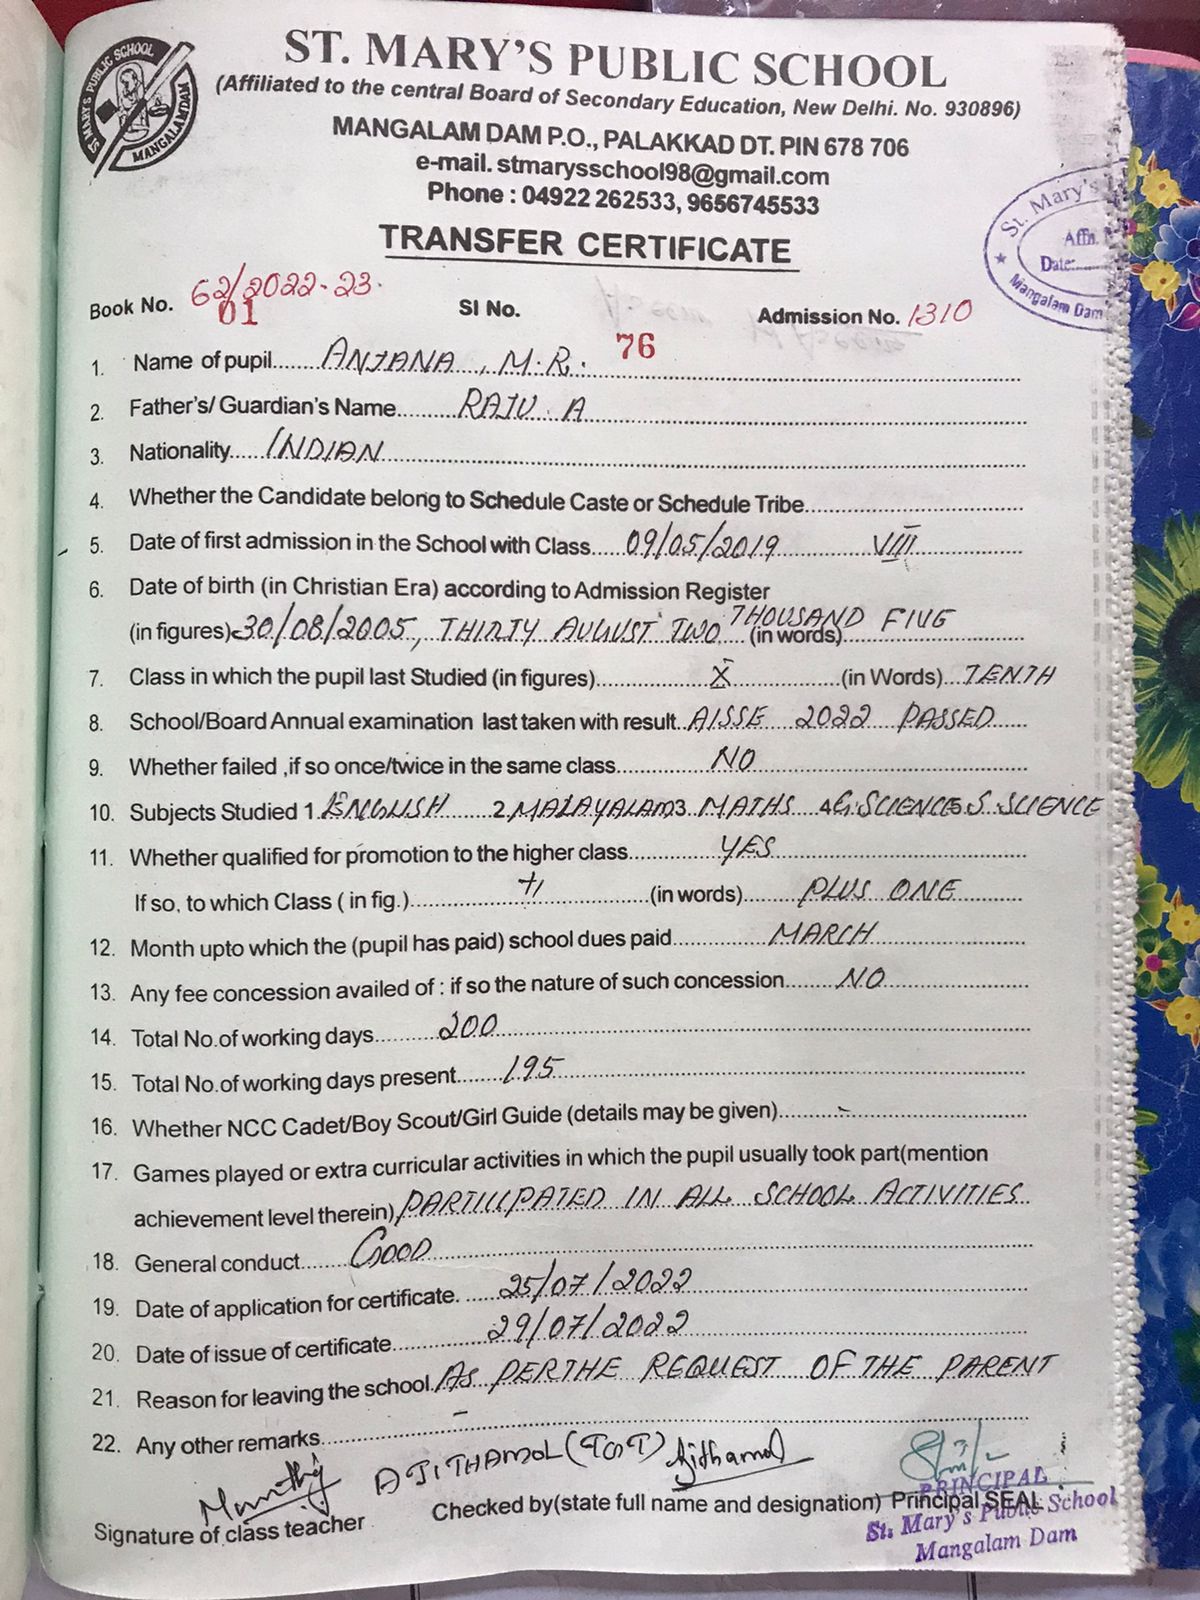 ST. MARY'S PUBLIC SCHOOL
MANGALAMDAM
ST. MARY'S PUBLIC SCHOOL
(Affiliated to the central Board of Secondary Education, New Delhi. No. 930896)
MANGALAM DAM P.O., PALAKKAD DT. PIN 678 706
e-mail. stmarysschool98@gmail.com
Phone : 04922 262533, 9656745533
St. Mary's
Affn.
Date:
Mangalam Dam
TRANSFER CERTIFICATE
Book No. 62/2022-23. SI No. Admission No. 1310
01 76
1. Name of pupil ANJANA, M.R.
2. Father's/ Guardian's Name RAJU A
3. Nationality INDIAN
4. Whether the Candidate belong to Schedule Caste or Schedule Tribe
5. Date of first admission in the School with Class 09/05/2019 VIII
6. Date of birth (in Christian Era) according to Admission Register
(in figures) 30/08/2005, THIRTY AUGUST TWO THOUSAND FIVE (in words)
7. Class in which the pupil last Studied (in figures) X (in Words) TENTH
8. School/Board Annual examination last taken with result AISSE 2022 PASSED
9. Whether failed ,if so once/twice in the same class NO
10. Subjects Studied 1 ENGLISH 2 MALAYALAM 3. MATHS 4 G.SCIENCE 5. S.SCIENCE
11. Whether qualified for promotion to the higher class YES
If so, to which Class ( in fig.) +1 (in words) PLUS ONE
12. Month upto which the (pupil has paid) school dues paid MARCH
13. Any fee concession availed of : if so the nature of such concession NO
14. Total No.of working days 200
15. Total No.of working days present 195
16. Whether NCC Cadet/Boy Scout/Girl Guide (details may be given) -
17. Games played or extra curricular activities in which the pupil usually took part(mention
achievement level therein) PARTICIPATED IN ALL SCHOOL ACTIVITIES
18. General conduct GOOD
19. Date of application for certificate. 25/07/2022
20. Date of issue of certificate 29/07/2022
21. Reason for leaving the school. AS PER THE REQUEST OF THE PARENT
22. Any other remarks -
AJITHAMOL (TGT) Ajithamol
Signature of class teacher Checked by(state full name and designation) Principal SEAL
PRINCIPAL
St. Mary's Public School
Mangalam Dam